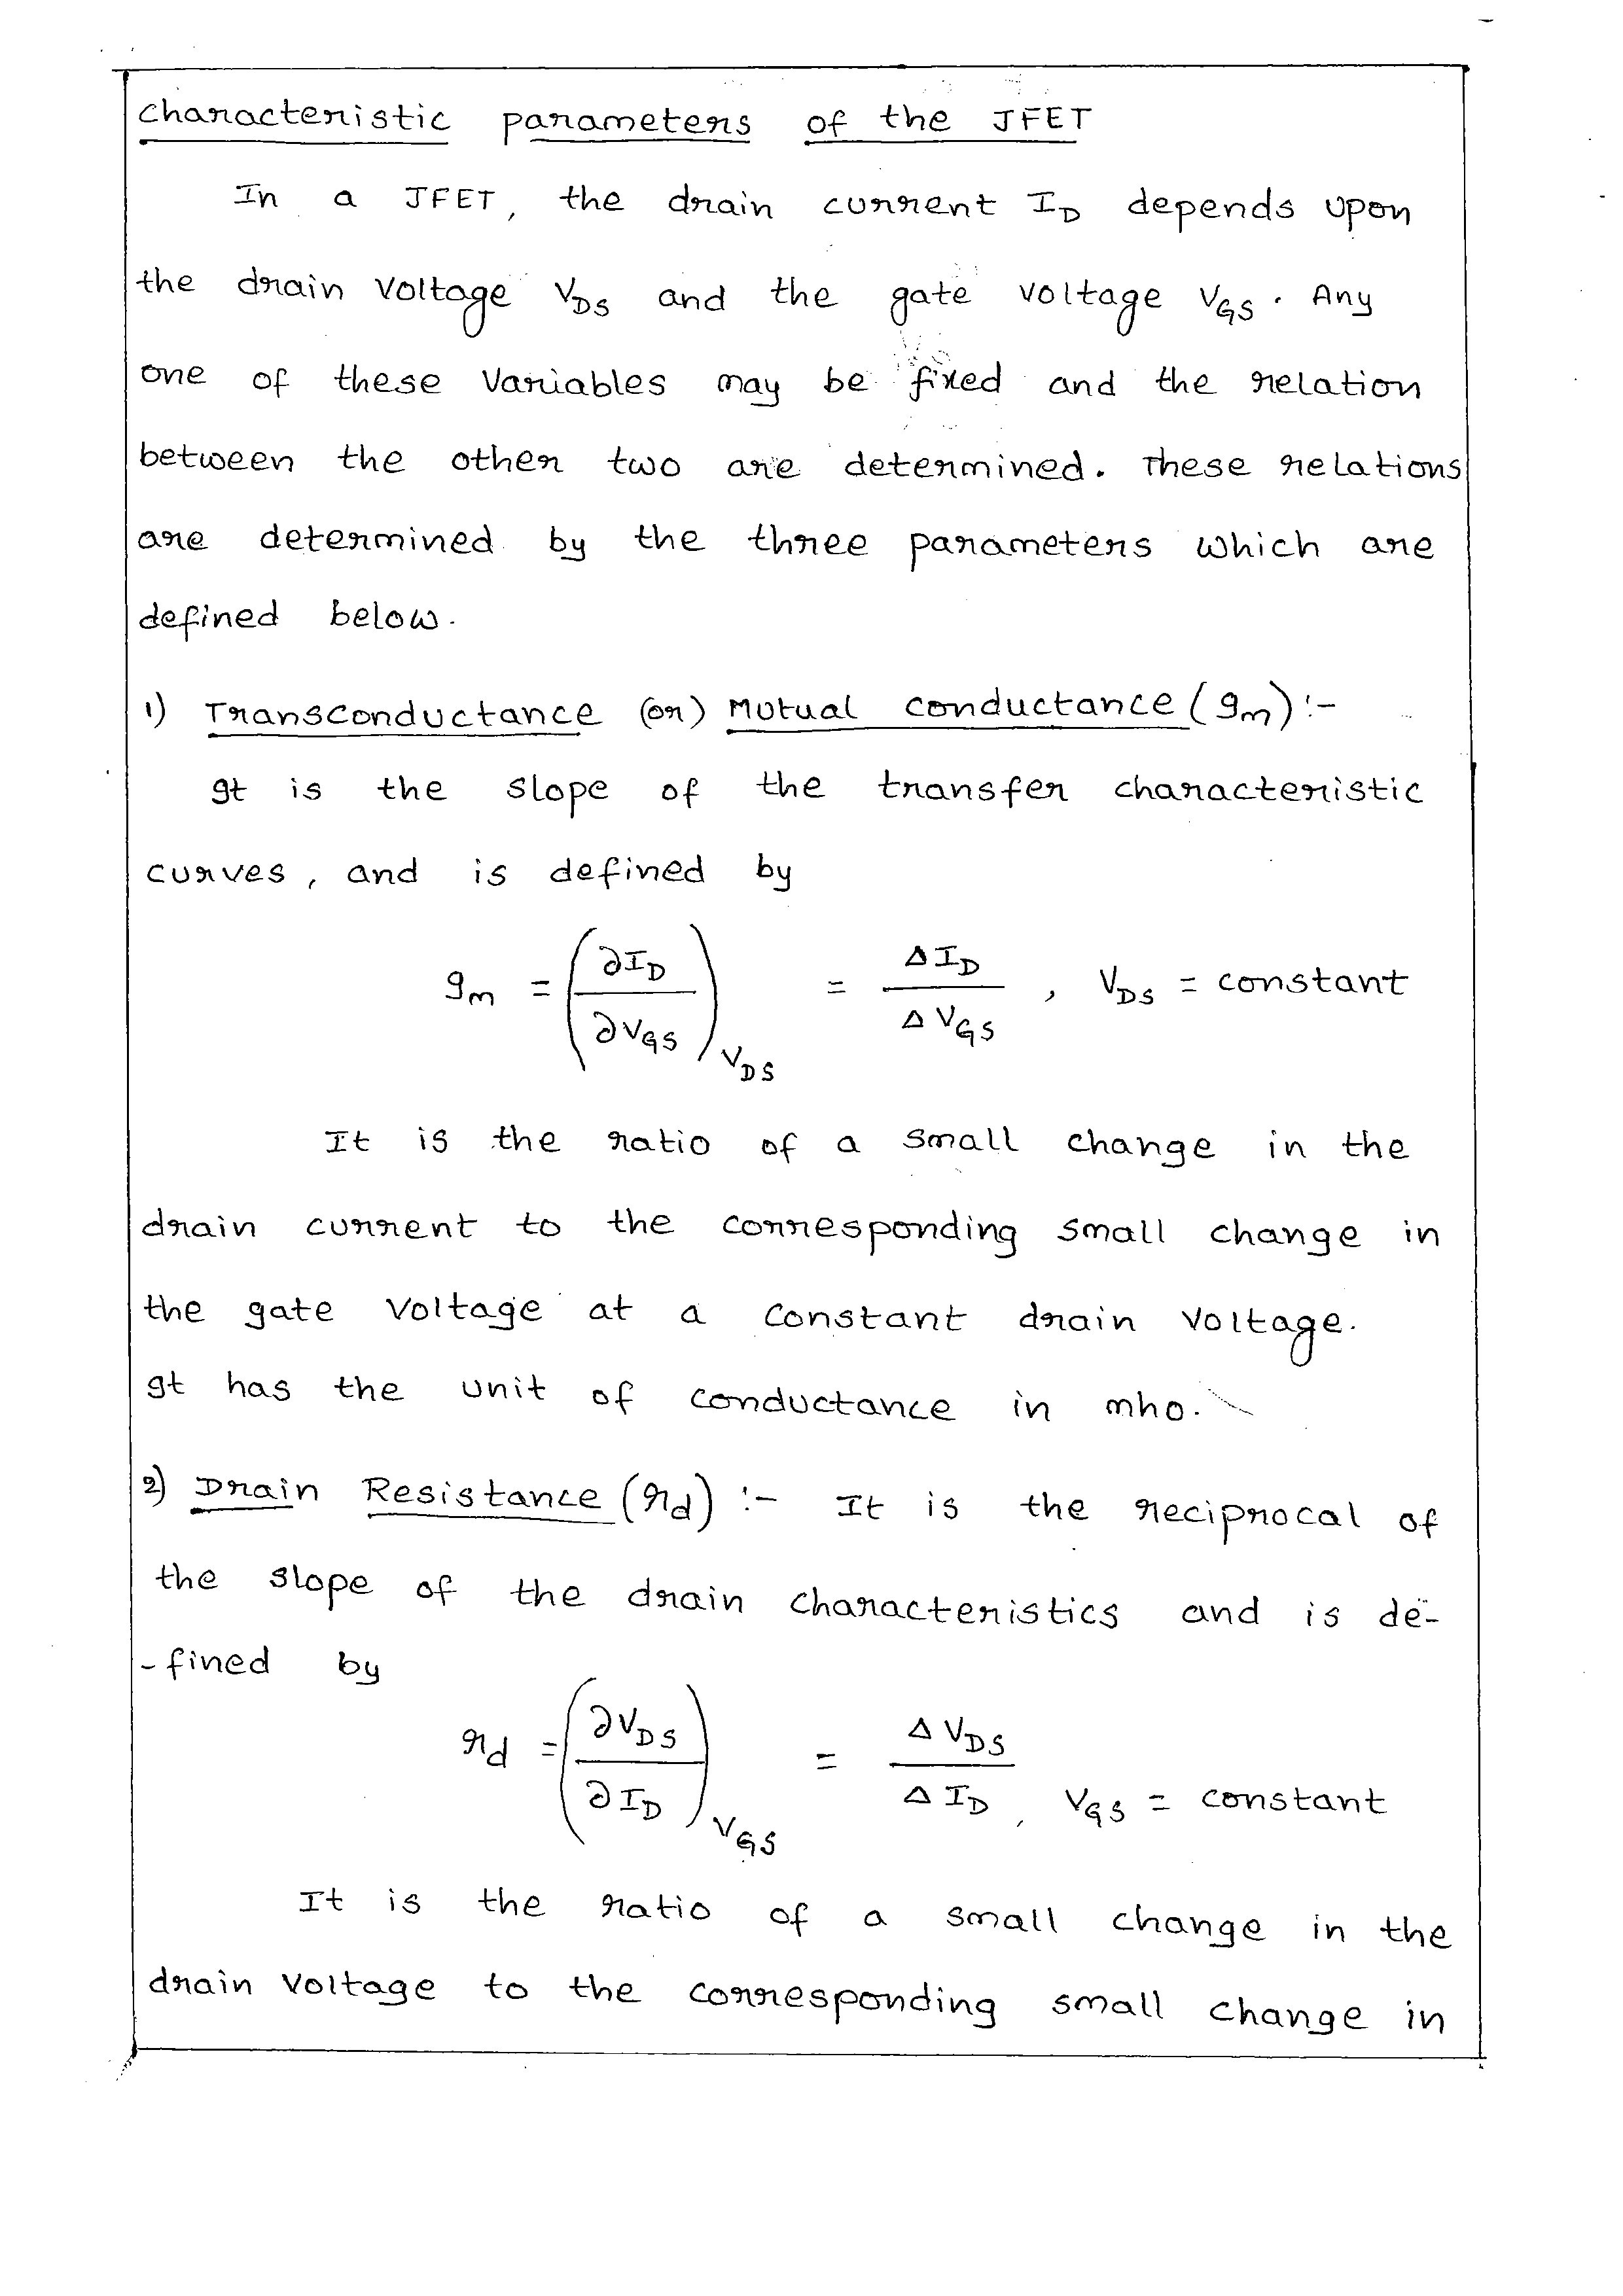 characteristic parameters of the JFET
In a JFET, the drain current I_D depends upon
the drain voltage V_DS and the gate voltage V_GS. Any
one of these variables may be fixed and the relation
between the other two are determined. These relations
are determined by the three parameters which are
defined below.
1) Transconductance (or) Mutual conductance (g_m) :-
It is the slope of the transfer characteristic
curves, and is defined by
g_m = (∂I_D / ∂V_GS)_V_DS = ΔI_D / ΔV_GS , V_DS = constant
It is the ratio of a small change in the
drain current to the corresponding small change in
the gate voltage at a constant drain voltage.
It has the unit of conductance in mho.
2) Drain Resistance (r_d) :- It is the reciprocal of
the slope of the drain characteristics and is de-
-fined by
r_d = (∂V_DS / ∂I_D)_V_GS = ΔV_DS / ΔI_D , V_GS = constant
It is the ratio of a small change in the
drain voltage to the corresponding small change in